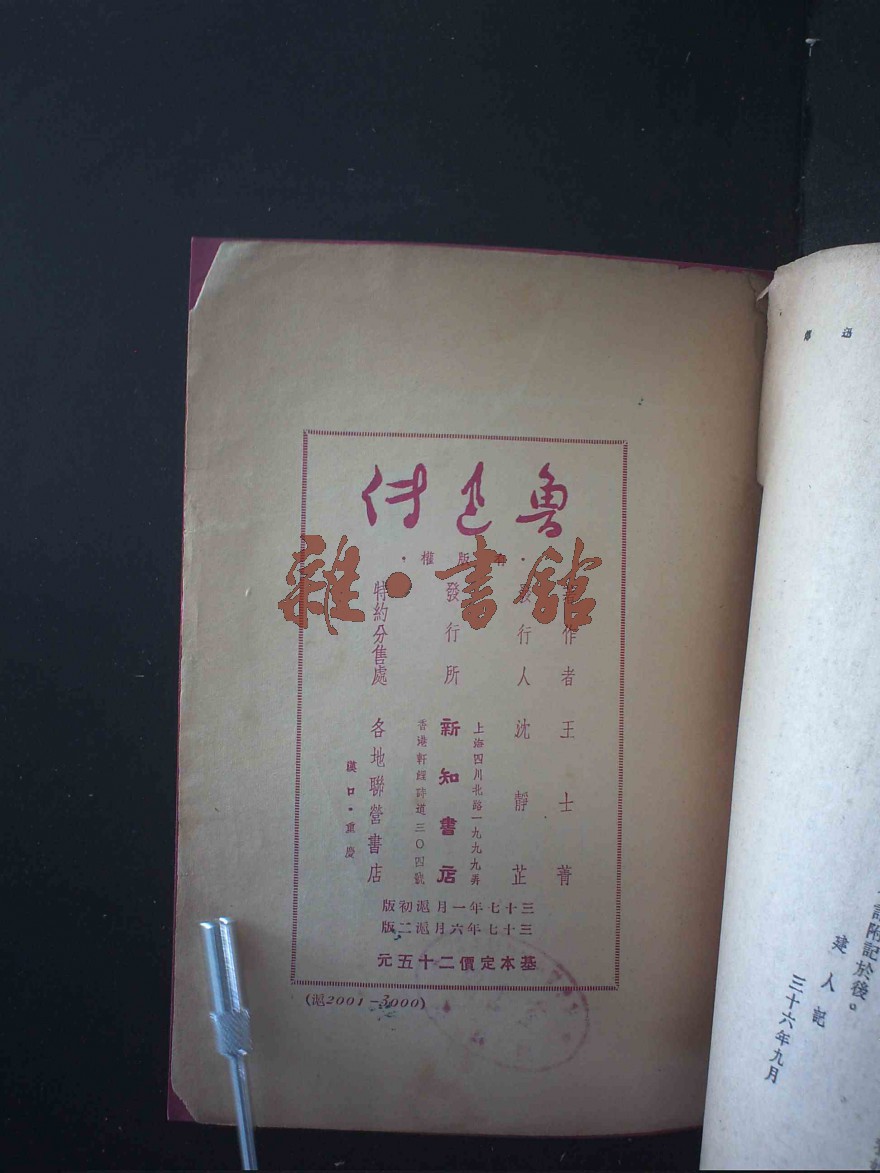 魯迅传
雜·書館
·有版權·
著作者 王士菁
發行人 沈靜芷
上海四川北路一九九九弄
發行所 新知書店
香港軒鯉詩道三〇四號
特約分售處 各地聯營書店
漢口·重慶
三十七年一月滬初版
三十七年六月滬二版
基本定價二十五元
(滬2001-3000)
迅 傳
附記於後。
建人記
三十六年九月